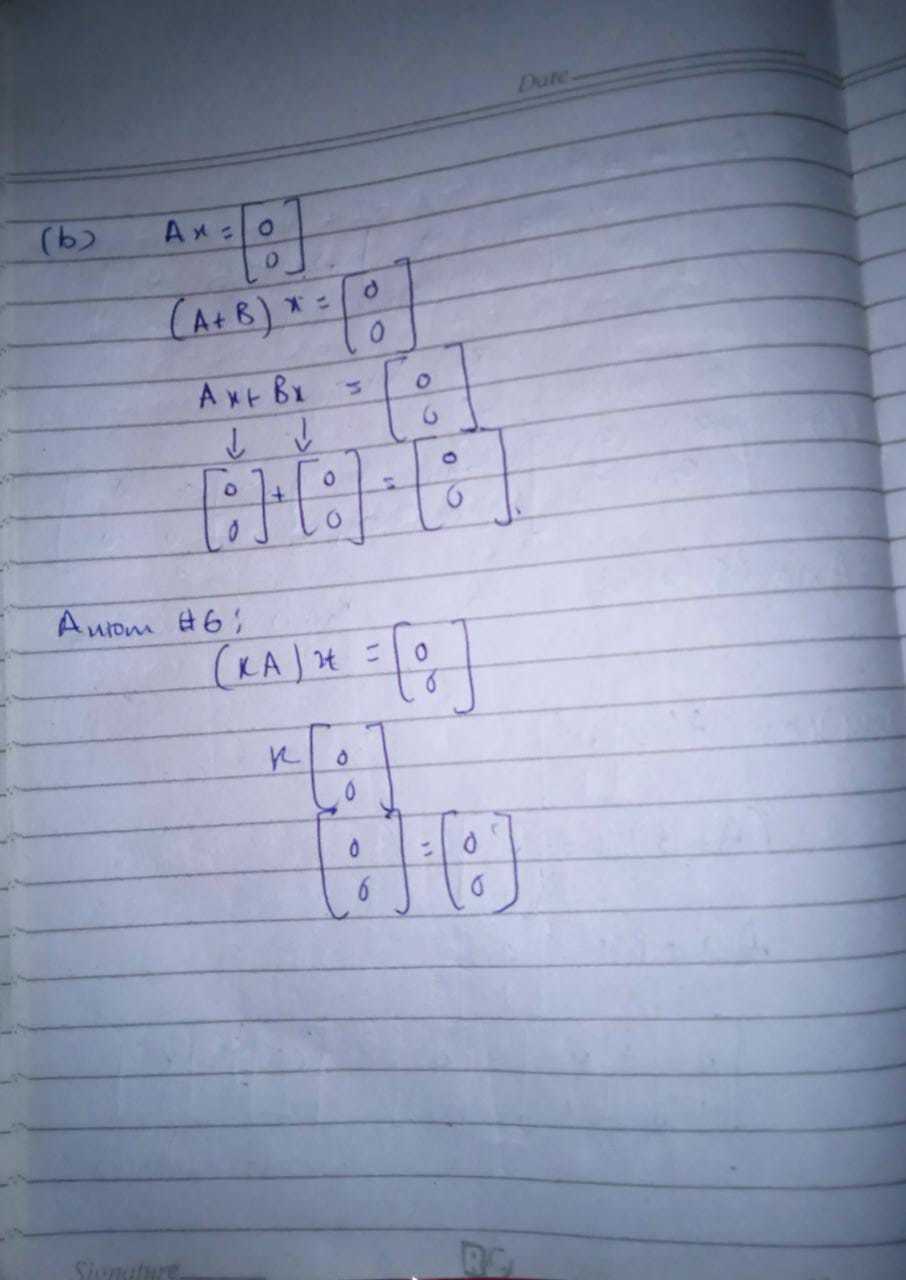 Date
(b) Ax = [0 0]
(A+B) x = [0 0]
Ax+ Bx = [0 0]
↓ ↓
[0 0] + [0 0] = [0 0].
Axiom #6;
(KA)x = [0 0]
K [0 0]
[0 0] = [0 0]
Signature